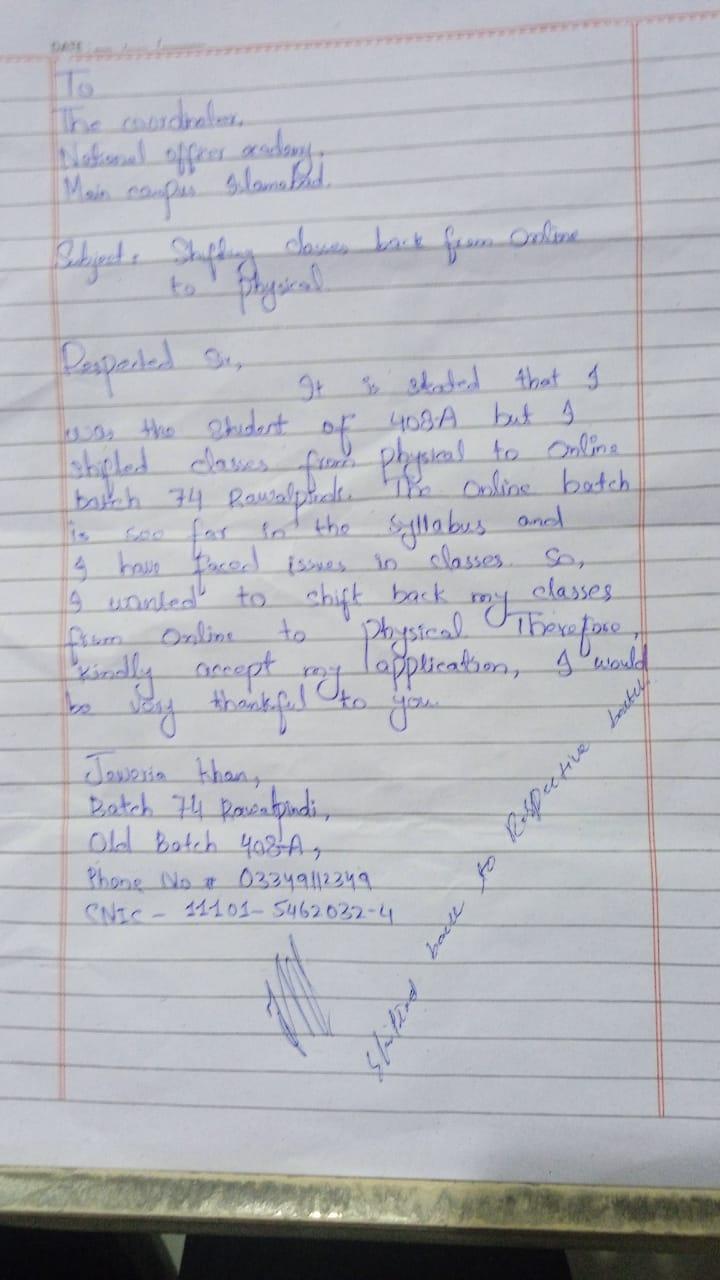 DATE
To
The coordinator,
National officer academy,
Main campus Islamabad.
Subject: Shifting classes back from Online
to physical
Respected Sir,
It is stated that I
was the student of 408-A but I
shifted classes from physical to Online
batch 74 Rawalpindi. The Online batch
is soo far in the syllabus and
I have faced issues in classes. So,
I wanted to shift back my classes
from Online to Physical. Therefore,
kindly accept my application, I would
be very thankful to you.
Jaweria Khan,
Batch 74 Rawalpindi,
Old Batch 408-A,
Phone No # 03349112349
CNIC - 11101-5462032-4
Shifted back to Respective batch.